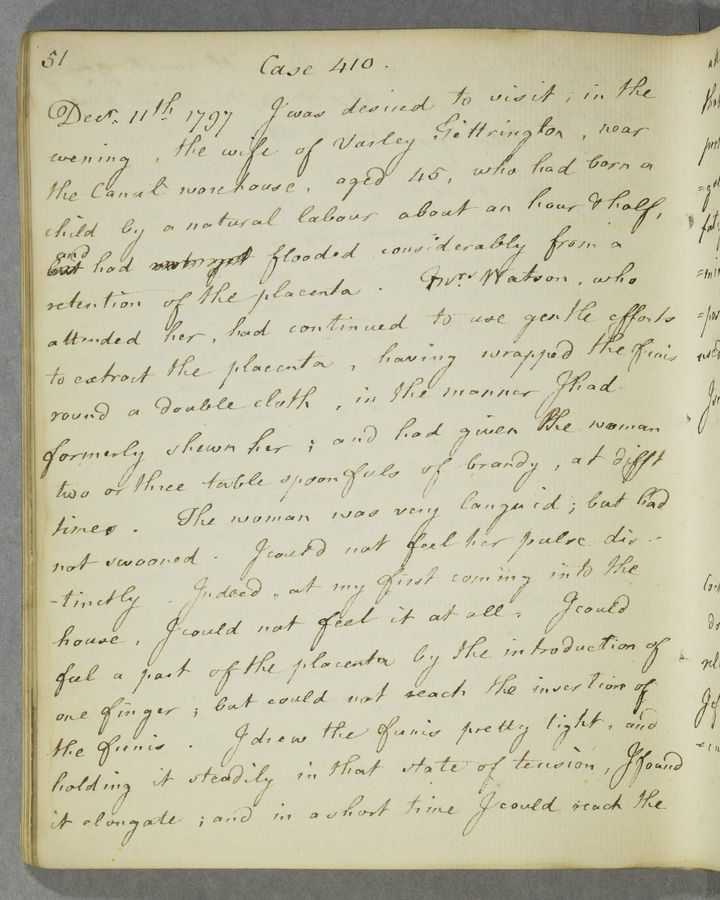 51
Case 410.
Decr. 11th. 1797 I was desired to visit, in the
evening, the wife of Varley Gittrington, near
the Canal warehouse, aged 45, who had born a
child by a natural labour about an hour & half,
and had flooded considerably from a
retention of the placenta. Mrs. Watson, who
attended her, had continued to use gentle efforts
to extract the placenta, having wrapped the funis
round a double cloth, in the manner I had
formerly shewn her; and had given the woman
two or three table spoonfuls of brandy, at difft
times. The woman was very languid; but had
not swooned. I could not feel her pulse dis-
-tinctly. Indeed, at my first coming into the
house, I could not feel it at all. I could
feel a part of the placenta by the introduction of
one finger; but could not reach the insertion of
the funis. I drew the funis pretty tight, and
holding it steadily in that state of tension, I found
it elongate; and in a short time I could reach the